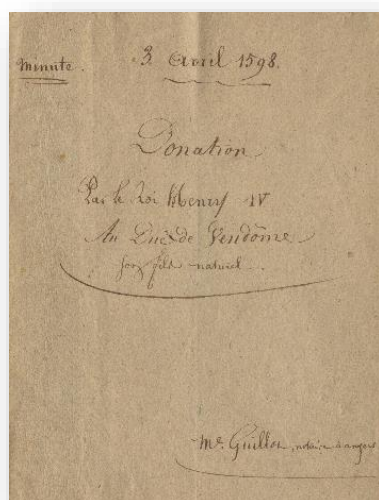 Minute.
3 Avril 1598.
Donation
Par le Roi Henry IV
Au Duc de Vendôme
son fils naturel.
Me. Guillot, notaire à angers